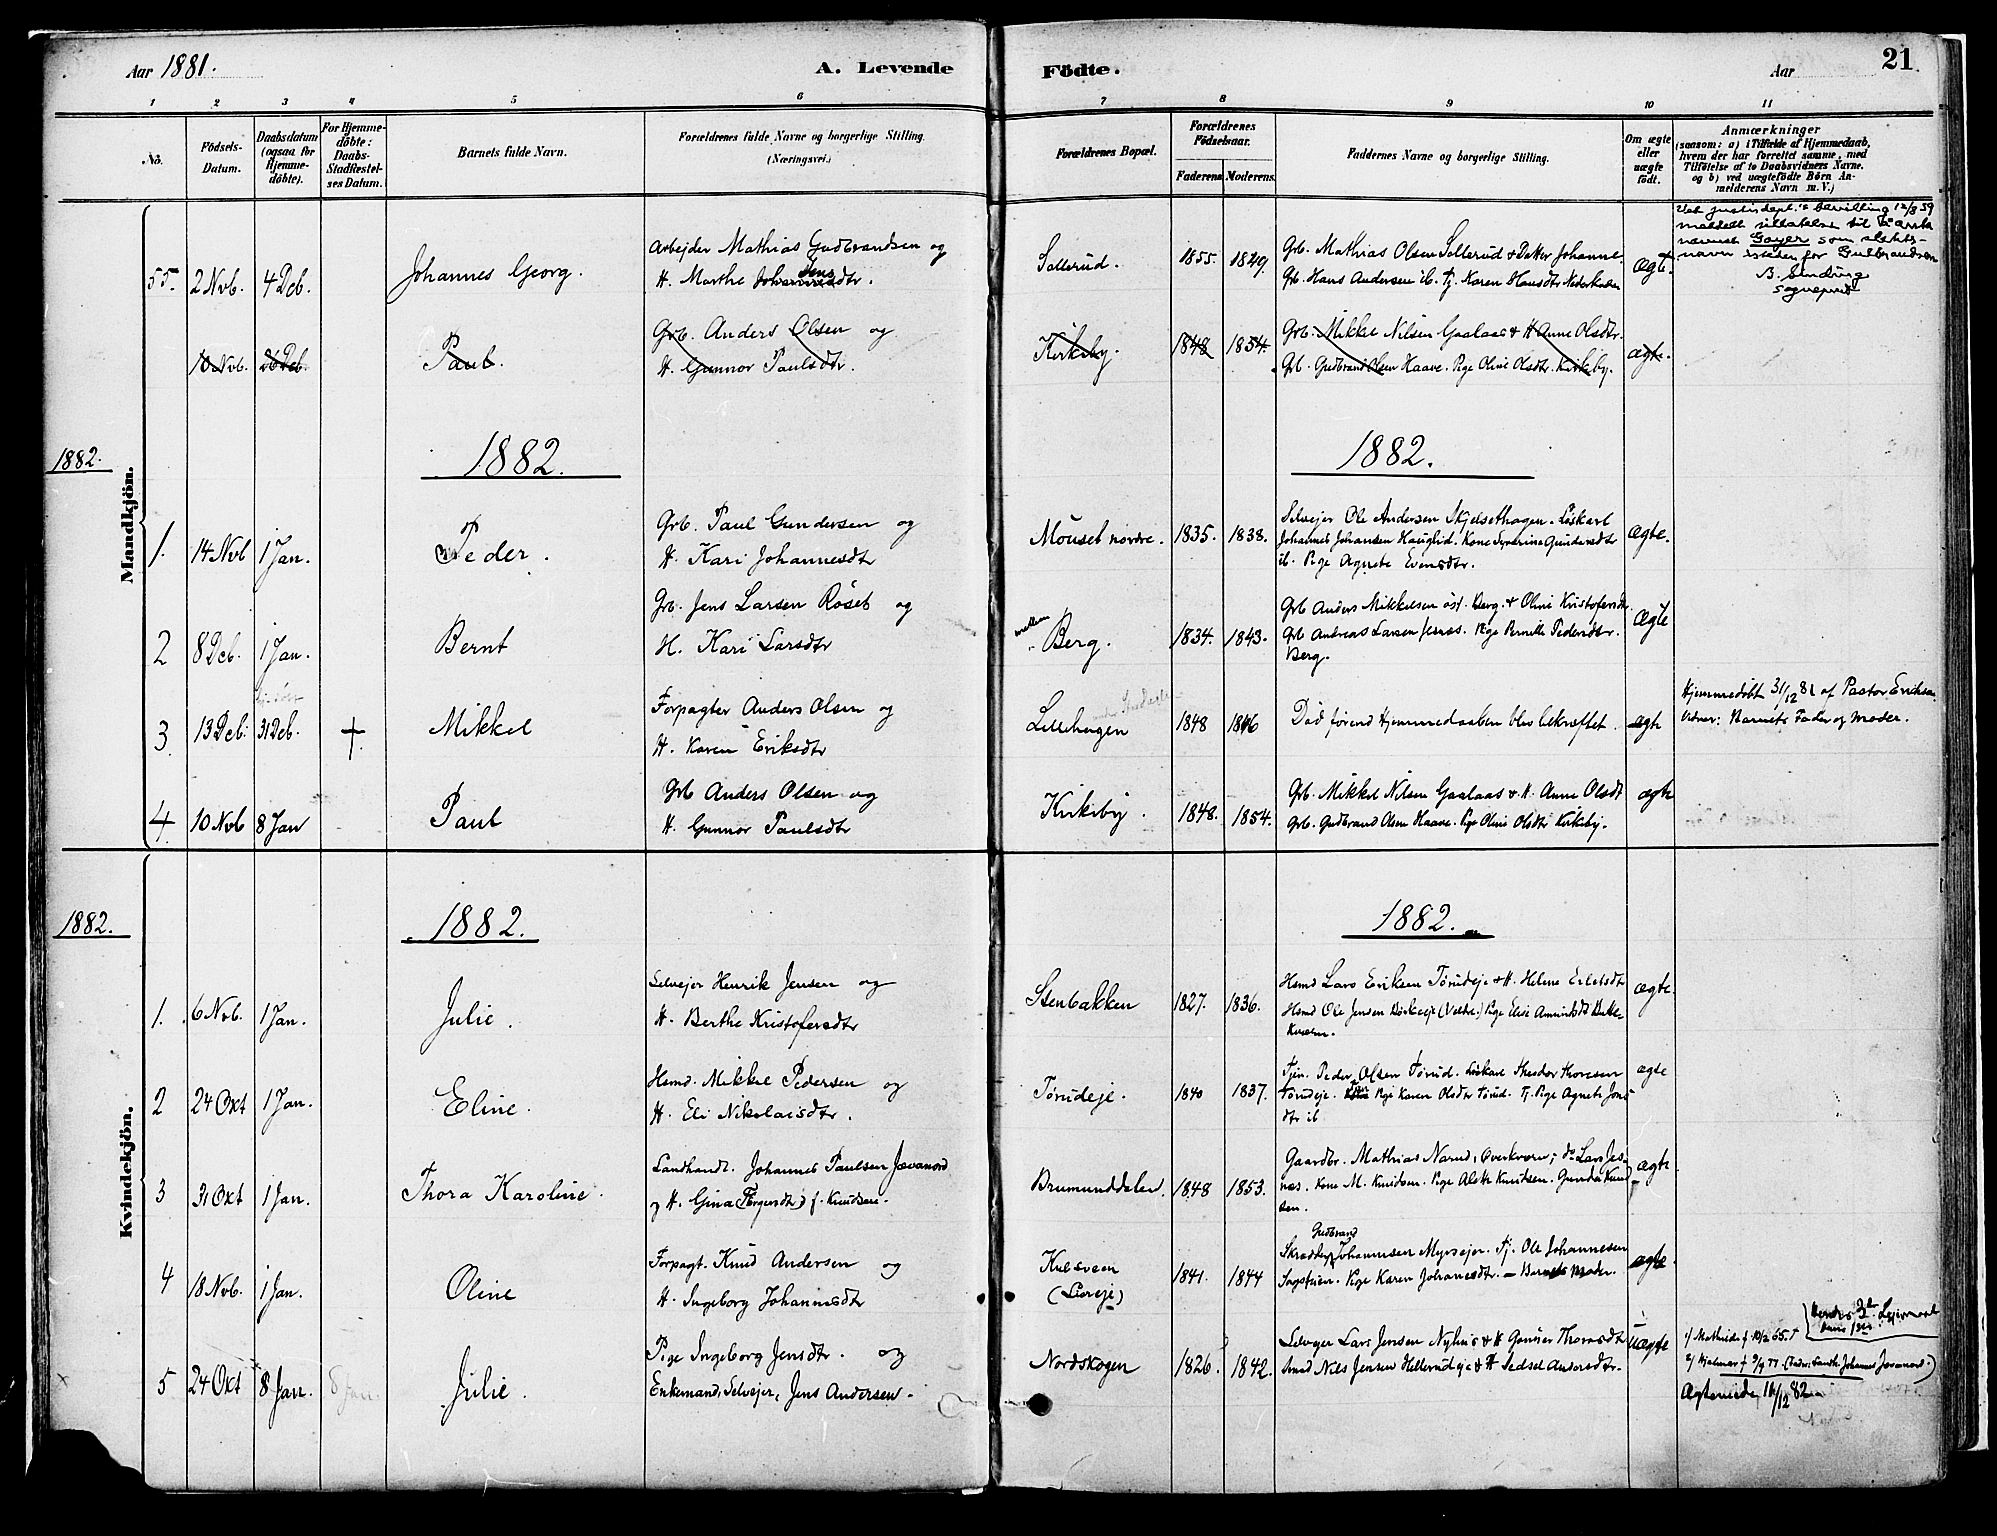 Aar 1881.
A. Levende Födte.
Aar
21
1 2 3 4 5 6 7 8 9 10 11
No.
Födsels-Datum.
Daabsdatum (ogsaa for Hjemme-döbte).
For Hjemme-döbte: Daabs-Stadfæstel-ses Datum.
Barnets fulde Navn.
Forældrenes fulde Navne og borgerlige Stilling. (Næringsvei.)
Forældrenes Bopæl.
Forældrenes Födselsaar.
Faderens Moderens.
Faddernes Navne og borgerlige Stilling.
Om ægte eller uægte födt.
Anmærkninger
(saasom: a) i Tilfælde af Hjemmedaab, hvem der har forrettet samme, med Tilföielse af to Daabsvidners Navne. og b) ved uægtefödte Börn An-melderens Navn m. V.)
55. 2 Nvb. 4 Dcb. Johannes Georg.
Arbejder Mathias Gudbrandsen og
H. Marthe Jensdtr.
Sollerud. 1855. 1849.
Grb. Mathias Olsen Sollerud & Datter Johanne.
Grb. Hans Andersen ib. Tj. Karen Hansdtr
ægte.
Ved justisdept.s bevilling 12/8 59
meddelt tillatelse til å anta
navnet Goyer som slekts-
navn isteden for Gulbrandsen
sogneprest
10 Nvb. 26 Dcb. Paul.
Grb. Anders Olsen og
H. Gunnor Paulsdtr.
Kirkeby. 1848 1854.
Grb. Mikkel Nilsen Gaalaas & H Anne Olsdtr.
Grb. Gudbrand Olsen Haave. Pige Oline Olsdtr. Kirkeby.
ægte.
1882.
1882.
1882.
Mandkjön.
1. 14 Nvb 1 Jan. Peder.
Grb. Paul Gundersen og
H. Kari Johannesdtr
Mouset nordre. 1835. 1838.
Selvejer Ole Andersen Skjelsethagen. Löskarl
Johannes Johansen Hauglid. Kone Severine Gundersdtr
ib. Pige Agnete Evensdtr.
Ægte.
2 8 Dcb. 1 Jan. Bernt
Grb. Jens Larsen Röset og
H. Kari Larsdtr
mellem
Berg. 1834. 1843.
Grb Anders Mikkelsen öst. Berg. & Oline Kristofersdtr
Grb Andreas Larsen Jesnæs. Pige Pernille Pedersdtr.
Berg.
Ægte
3. 13 Dcb. 31 Dcb. + Mikkel
Forpagter Anders Olsen og
H. Karen Eriksdtr
Lillehagen 1848 1846
Död förend Hjemmedaaben blev bekræftet.
ægte
Hjemmedöbt 31/12 81 af Pastor Eriksen
Vidner: Barnets Fader og Moder.
4. 10 Nvb 8 Jan Paul
Grb Anders Olsen og
H. Gunnor Paulsdtr
Kirkeby. 1848. 1854.
Grb. Mikkel Nilsen Gaalaas & H. Anne Olsdt
Grb. Gudbrand Olsen Haave. Pige Oline Olsdtr Kirkeby.
ægte
1882.
1882.
1882.
Kvindekjön.
1. 6 Nvb. 1 Jan. Julie.
Selvejer Henrik Jensen og
H. Berthe Kristofersdtr
Stenbakken 1827. 1836.
Hsmd Lars Eriksen Törudeje & H. Helene Erlandsdt
Hsmd Ole Jensen Börkeeje (Veldre.) Pige Elise Amundsdt Bekke-
kværn.
ægte.
2 24 Okt 1 Jan. Eline.
Hsmd. Mikkel Pedersen og
H. Eli Nikolaisdtr.
Törudeje. 1840 1837.
Tjen. Peder Olsen Törud. Löskarl Theodor Thoresen
Törudeje. Pige Karen Olsdtr Törud. Tj. Pige Agnete Jons
dtr ib.
ægte
3 31 Okt 1 Jan. Thora Karoline.
Landhandl. Johannes Paulsen Jevanord
og H. Gina f. Knudsen.
Brumunddalen. 1848 1853.
Gaardbr. Mathias Narud, Överkværn, do Lars Jes-
næs. Kone M. Knudsen. Pige Knudsen. Gunda Knud
sen.
ægte
4 18 Nvb. 1 Jan. Oline
Forpagt. Knud Andersen og
H. Ingeborg Johannesdtr
Kulsveen 1841. 1844
Gudbrand
Skrædder Johannesen Myrvejer. Tj. Ole Johannesen
Sagstuen. Pige Karen Johannesdtr. Barnets Moder.
ægte
5 24 Okt 8 Jan. Julie.
Pige Ingeborg Jensdtr. og
Enkemand, Selvejer, Jens Andersen.
Nordskogen 1826. 1842.
Selvejer Lars Jensen Nyhus & H Gunnor Thorsdt
Smed Nils Jensen Hellerudeje & H Sedsel Andersdtr.
Uægte
Hendes 3die Lejermaal
hans 1ste
1/ Mathilde f 10/2 65. †
2/ Hjalmar f 9/9 77. (Fader: Landh. Johannes Jevanord.)
Ægteviede 14/12 82